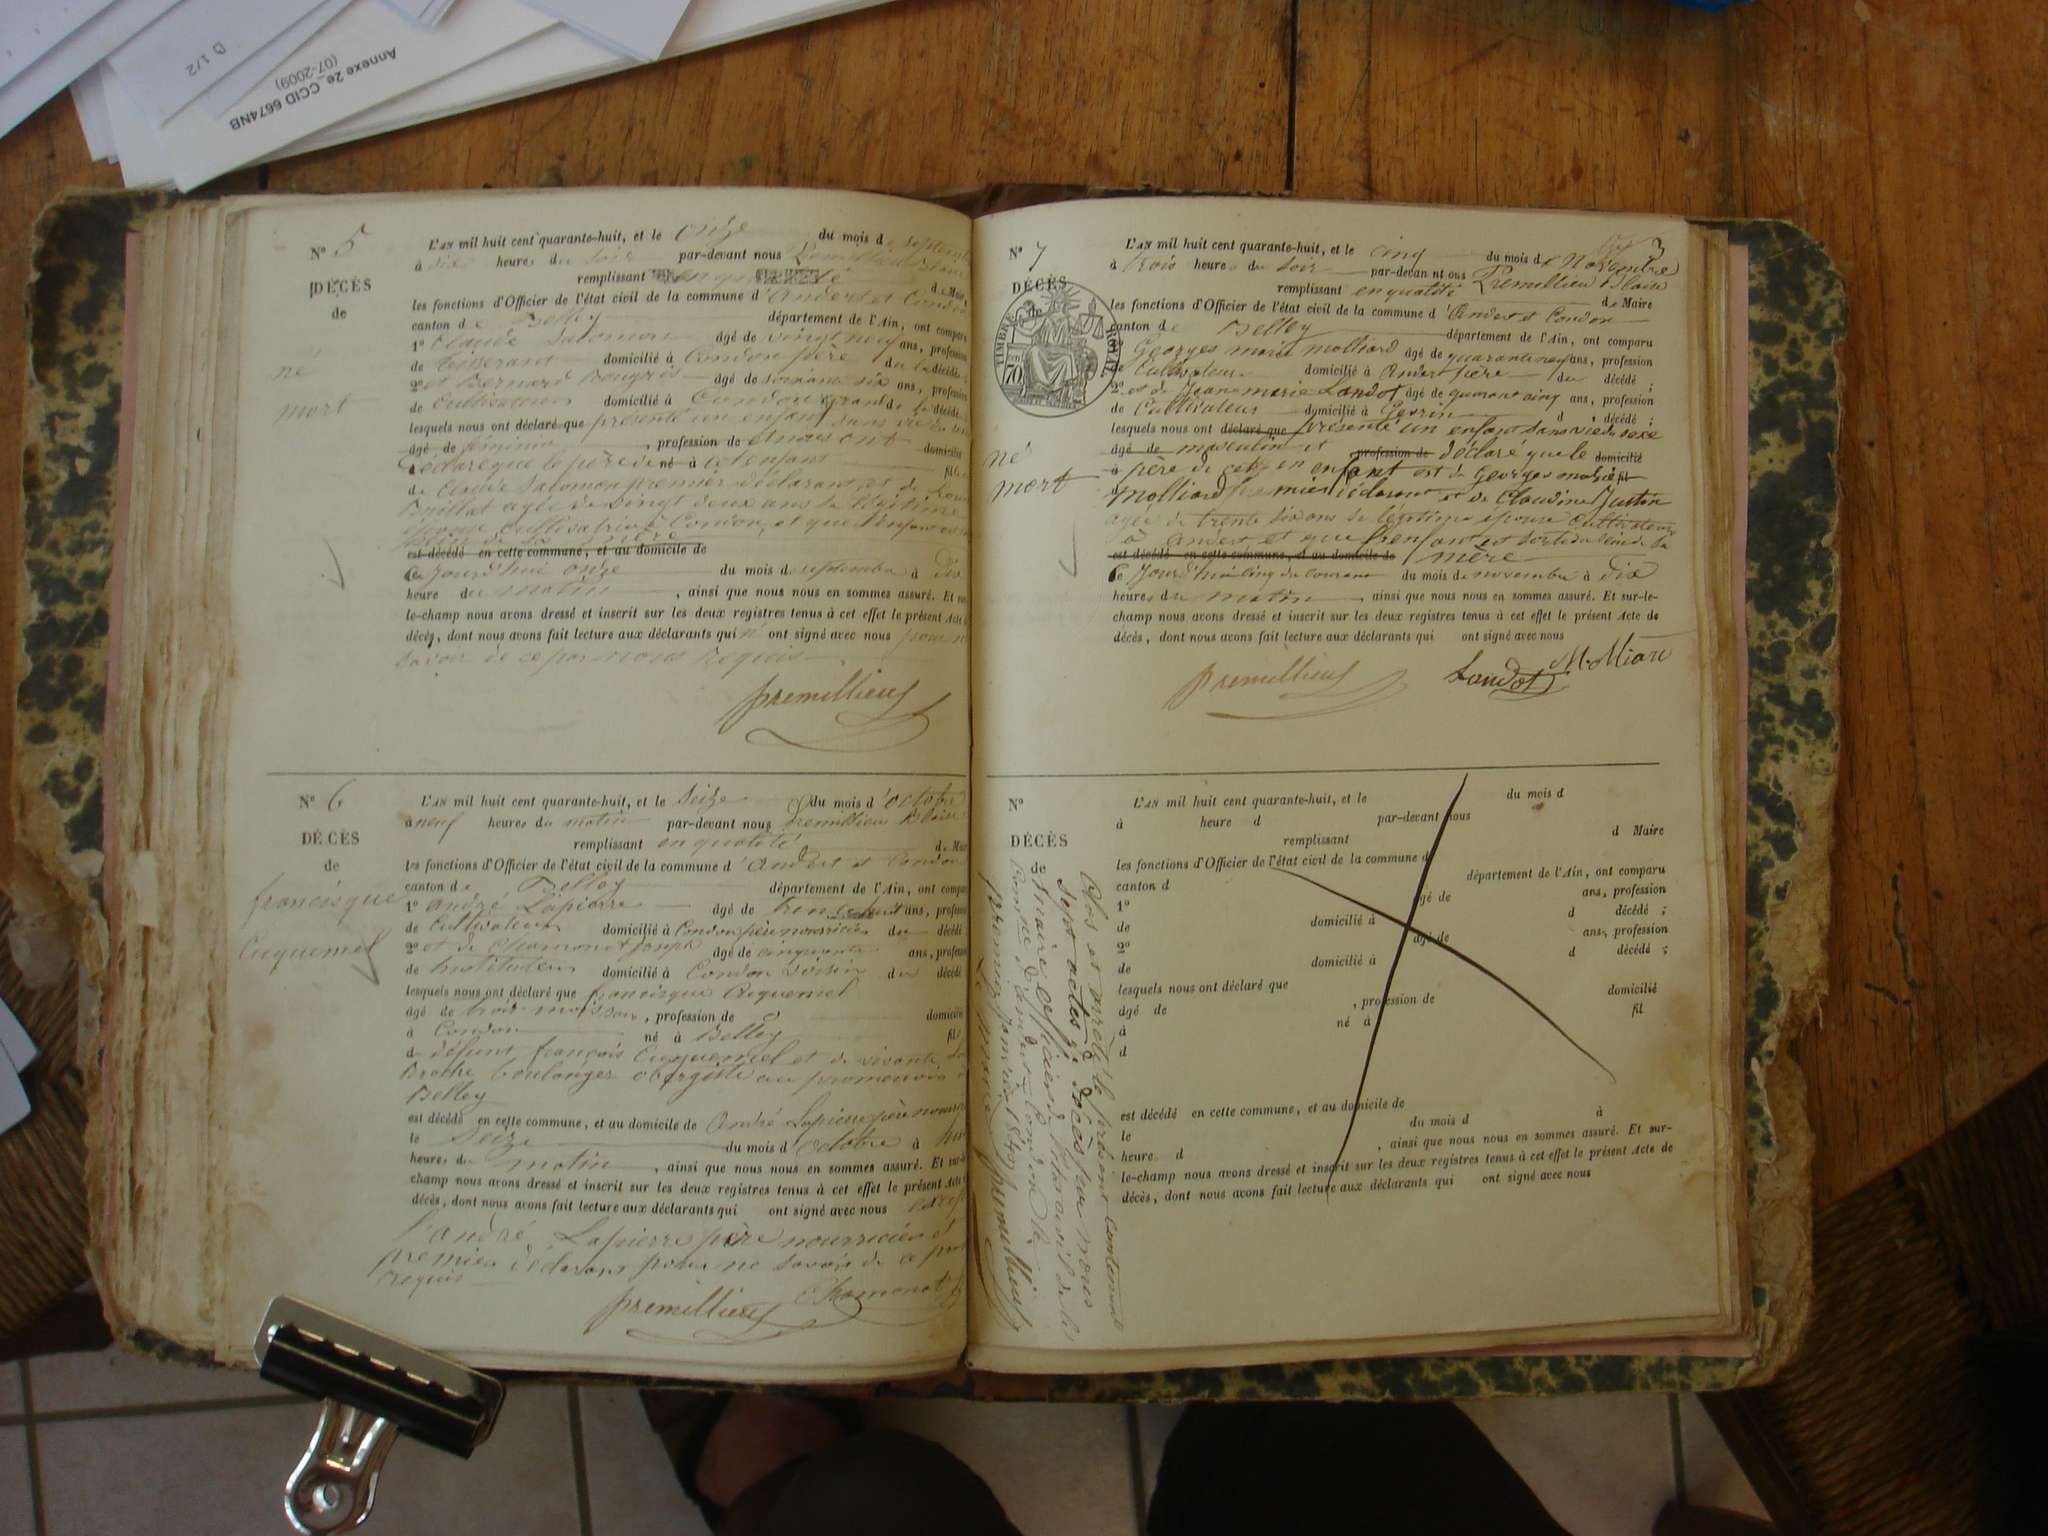 D 1/2
Annexe 2e_CCID 6674NB
(07-2009)
N° 5
DÉCÈS
de
né
mort
L'AN mil huit cent quarante-huit, et le onze du mois de septembre
à six heures du soir par-devant nous Premillieu Blaise
remplissant en qualité de Maire
les fonctions d'Officier de l'état civil de la commune d'Andert et Condon
canton de Belley département de l'Ain, ont comparu
1° Claude Salomon âgé de vingt neuf ans, profession
de Tisserand domicilié à Condon père du décédé
2° et Bernard âgé de soixante six ans, profession
de Cultivateur domicilié à Condon décédé
lesquels nous ont déclaré que présenté un enfant sans vie du sexe
âgé de féminin , profession de et nous ont domicilié
à déclaré que le père de né à cet enfant fil
de Claude Salomon premier déclarant et de
Brillat agée de vingt deux ans sa légitime
épouse cultivatrice à Condon, et que l'enfant est
sein de sa mère
est décédé en cette commune, et au domicile de
le jourd'hui onze du mois de septembre à dix
heure du matin , ainsi que nous nous en sommes assuré. Et sur-
le-champ nous avons dressé et inscrit sur les deux registres tenus à cet effet le présent Acte de
décès, dont nous avons fait lecture aux déclarants qui n' ont signé avec nous pour ne
savoir de ce par nous requis
premillieu
N° 6
DÉCÈS
de
francisque
Cuquemel
L'AN mil huit cent quarante-huit, et le Seize du mois d'octobre
à neuf heures du matin par-devant nous Premillieu Blaise
remplissant en qualité de Maire
les fonctions d'Officier de l'état civil de la commune d'Andert et Condon
canton de Belley département de l'Ain, ont comparu
1° André Lapierre âgé de trente huit ans, profession
de Cultivateur domicilié à Condon père nourricier du décédé
2° et de Chamonot Joseph âgé de cinquante ans, profession
de Instituteur domicilié à Condon voisin du décédé
lesquels nous ont déclaré que francisque Cuquemel
âgé de trois mois , profession de domicilié
à Condon né à Belley fil
de défunt françois Cuquemel et de vivante
Brothe boulanger obergiste au promenoir à
Belley
est décédé en cette commune, et au domicile de André Lapierre père nourricier
le Seize du mois d'octobre à huit
heures du matin , ainsi que nous nous en sommes assuré. Et sur-le-
champ nous avons dressé et inscrit sur les deux registres tenus à cet effet le présent Acte de
décès, dont nous avons fait lecture aux déclarants qui ont signé avec nous excepté
l'andré Lapierre père nourricier et
premier déclarant pour ne savoir de ce par
requis
Chamonot J
premillieu
3
N° 7
DÉCÈS
de
TIMBRE ROYAL
70
né
mort
L'AN mil huit cent quarante-huit, et le cinq du mois de Novembre
à trois heures du soir par-devant nous Premillieu Blaise
remplissant en qualité de Maire
les fonctions d'Officier de l'état civil de la commune d'Andert et Condon
canton de Belley département de l'Ain, ont comparu
1° Georges marie Molliard âgé de quarante neuf ans, profession
de Cultivateur domicilié à Andert père du décédé ;
2° et de Jean marie Landot âgé de quarante cinq ans, profession
de Cultivateur domicilié à Gevrin d décédé ;
lesquels nous ont déclaré que présenté un enfant sans vie du sexe
âgé de masculin et profession de déclaré que le domicilié
à père de cet enfant est de Georges marie fil
Molliard premier déclarant et de Claudine Justin
agée de trente six ans sa légitime épouse Cultivateur
à Andert et que l'enfant est sorti du sein de sa
est décédé en cette commune, et au domicile de mère
le jourd'hui cinq du courant du mois de novembre à dix
heures du matin , ainsi que nous nous en sommes assuré. Et sur-le-
champ nous avons dressé et inscrit sur les deux registres tenus à cet effet le présent Acte de
décès, dont nous avons fait lecture aux déclarants qui ont signé avec nous
premillieu Landot Molliard
N°
DÉCÈS
de
L'AN mil huit cent quarante-huit, et le du mois d
à heure d par-devant nous
remplissant d Maire
les fonctions d'Officier de l'état civil de la commune d
canton d département de l'Ain, ont comparu
1° âgé de ans, profession
de domicilié à d décédé ;
2° âgé de ans, profession
de domicilié à d décédé ;
lesquels nous ont déclaré que
âgé de , profession de domicilié
à né à fil
d
est décédé en cette commune, et au domicile de
le du mois d à
heure d , ainsi que nous nous en sommes assuré. Et sur-
le-champ nous avons dressé et inscrit sur les deux registres tenus à cet effet le présent Acte de
décès, dont nous avons fait lecture aux déclarants qui ont signé avec nous
Clos et arrêté le présent Contenant
Sept actes de décès par nous
Maire officier de l'état civil de la
Commune d'andert Condon le
premier Janvier 1849
Le Maire premillieu